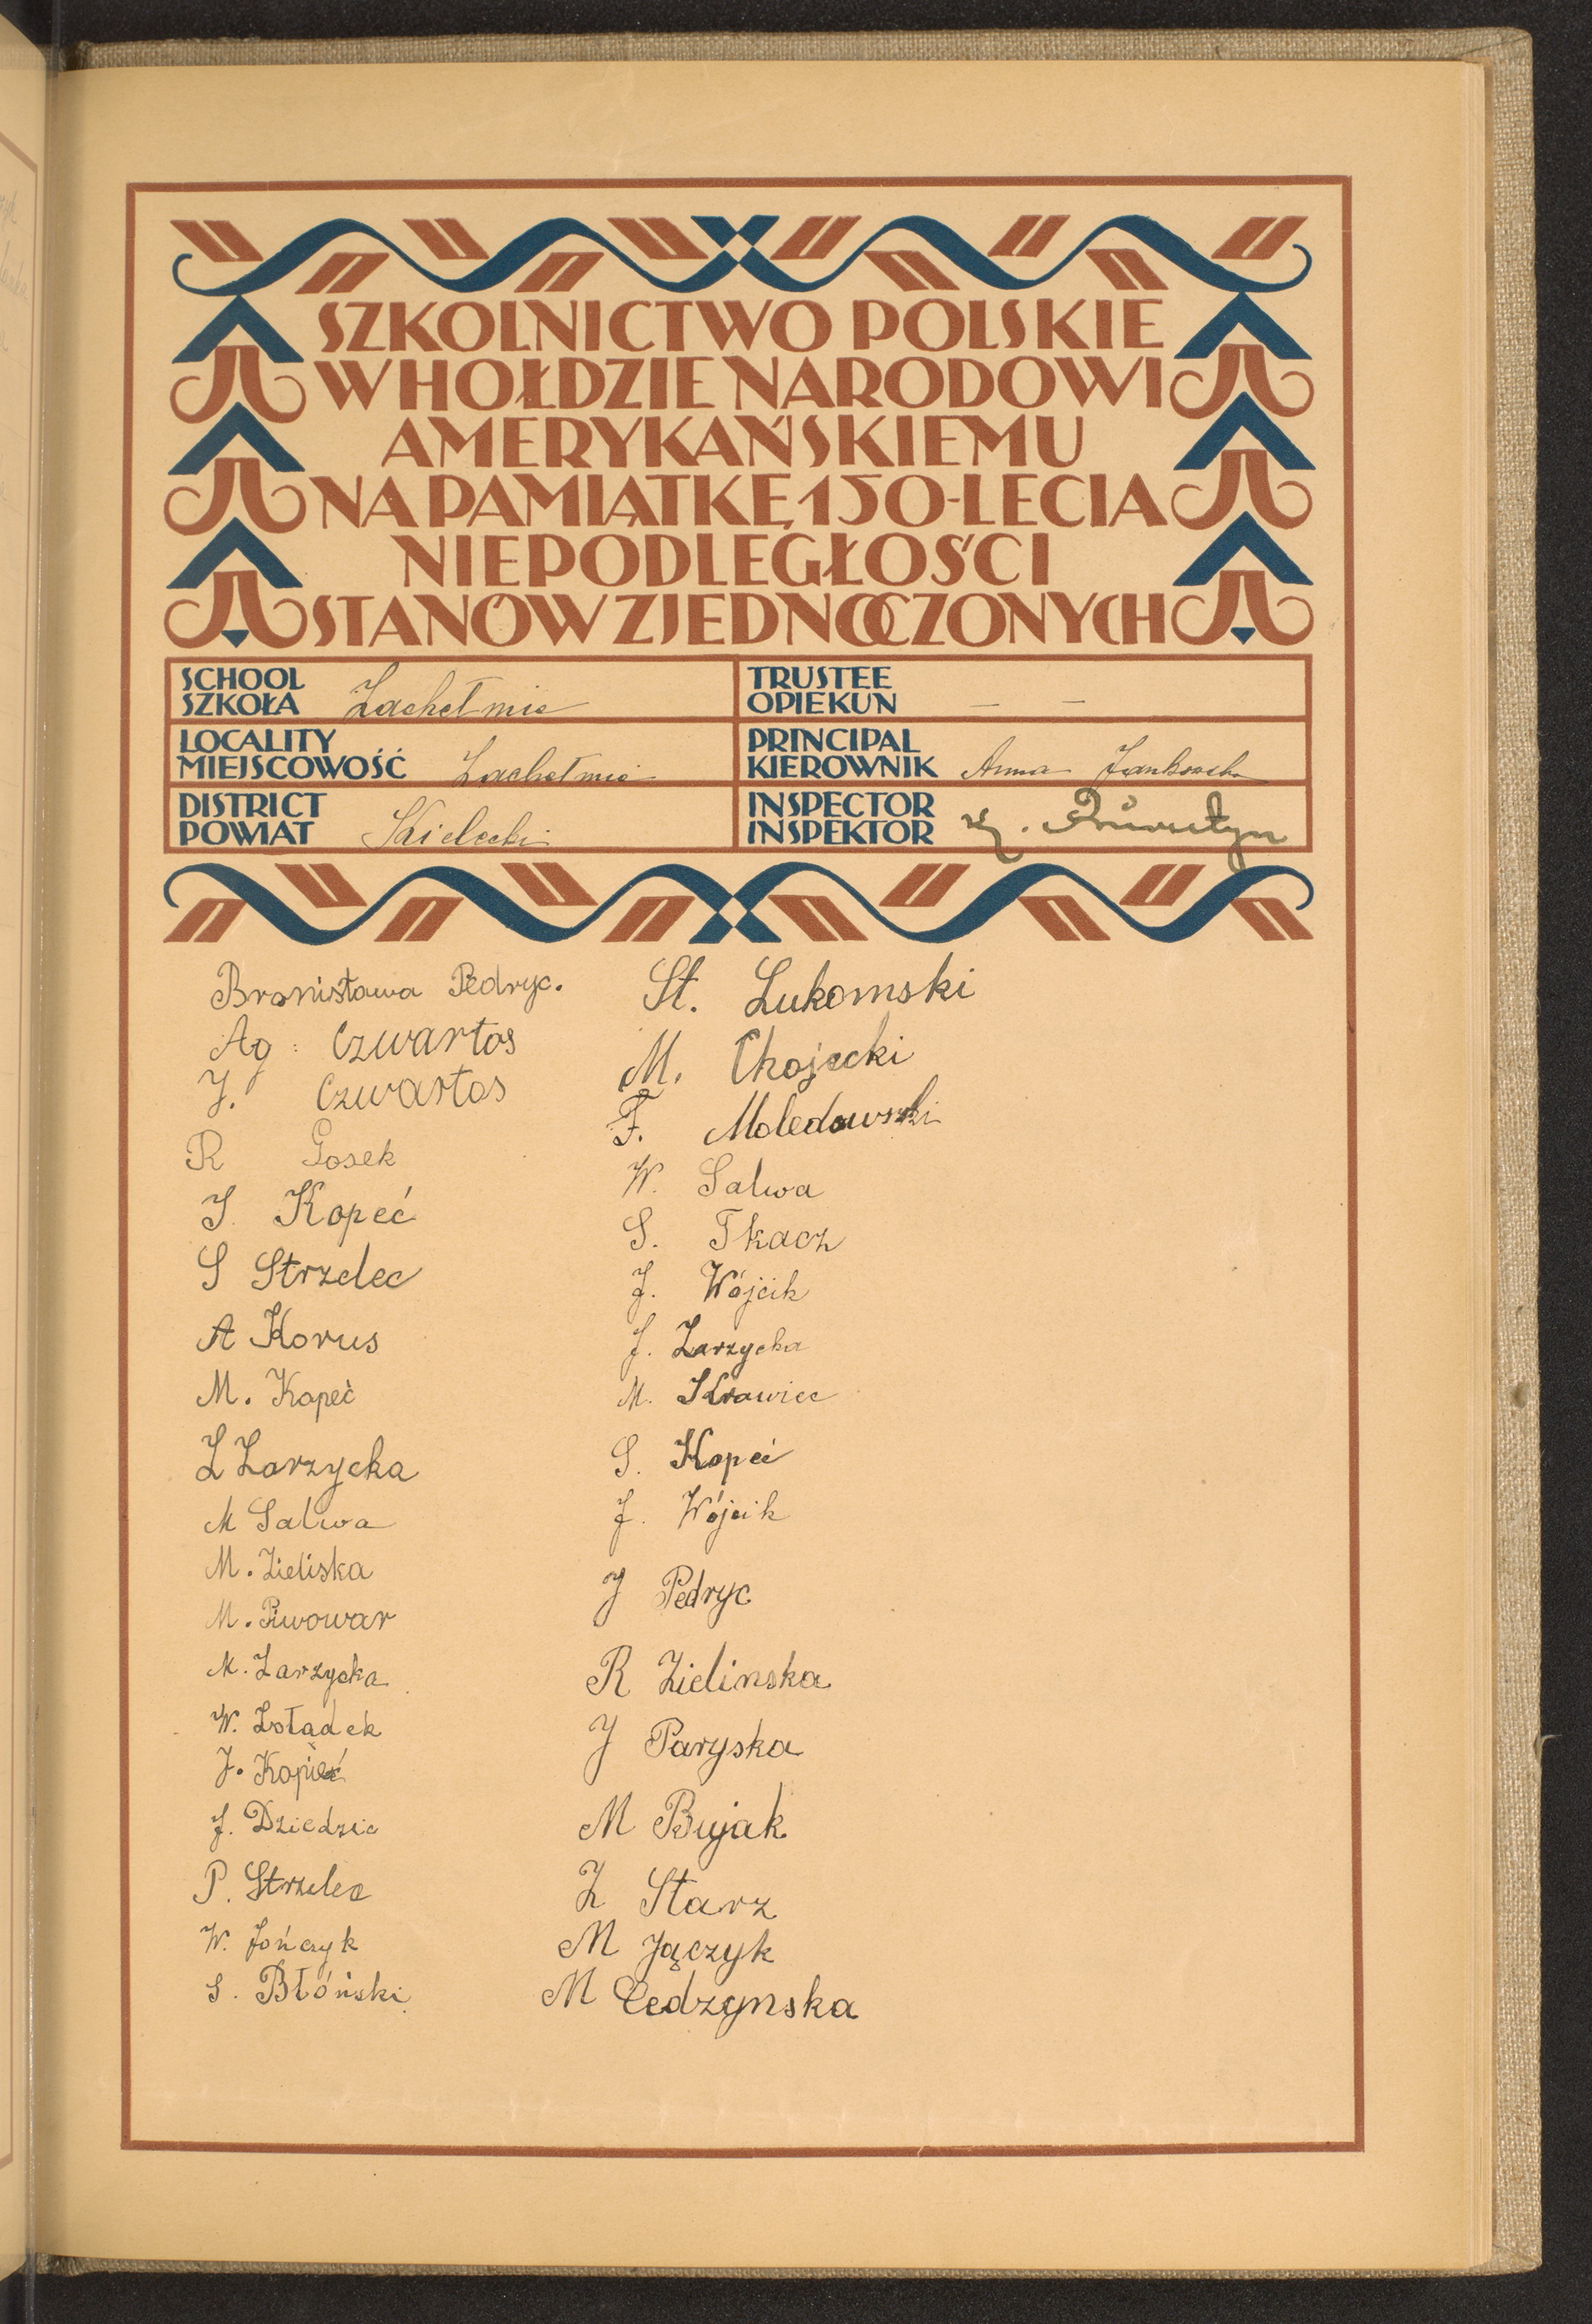 SZKOLNICTWO POLSKIE
W HOŁDZIE NARODOWI
AMERYKAŃSKIEMU
NA PAMIĄTKĘ 150-LECIA
NIEPODLEGŁOŚCI
STANÓW ZJEDNOCZONYCH
SCHOOL
SZKOŁA Zachełmie
TRUSTEE
OPIEKUN — —
LOCALITY
MIEJSCOWOŚĆ Zachełmie
PRINCIPAL
KIEROWNIK Anna Jankowska
DISTRICT
POWIAT Kielecki
INSPECTOR
INSPEKTOR
Bronisława Pedryc.
Ag. Czwartos
J. Czwartos
R Gosek
J. Kopeć
S Strzelec
A Korus
M. Kopeć
Z Zarzycka
M Salwa
M. Zieliska
M. Piwowar
M. Zarzycka
W. Zoładek
J. Kopieć
J. Dziedzic
P. Strzelec
W. Jończyk
S. Błóński
St. Lukomski
M. Chojecki
F. Moledowski
W. Salwa
S. Tkacz
J. Wójcik
J. Zarzycka
M. Krawiec
S. Kopeć
J. Wójcik
J Pedryc
R Zielinska
J Paryska
M Bujak
Z Starz
M Jączyk
M Cedzynska